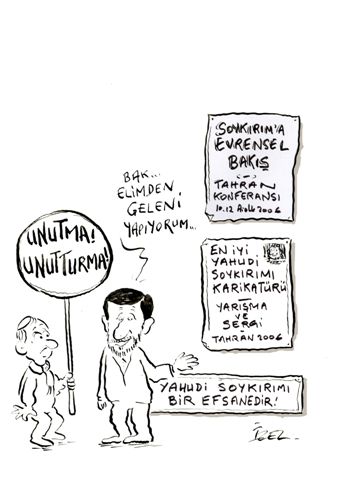 SOYKIRIM'A
EVRENSEL
BAKIŞ
TAHRAN
KONFERANSI
10.12 Aralık 2006
BAK...
ELİMDEN
GELENİ
YAPIYORUM...
UNUTMA!
UNUTTURMA!
EN İYİ
YAHUDİ
SOYKIRIMI
KARİKATÜRÜ
YARIŞMA
VE
SERGİ
TAHRAN 2006
YAHUDİ SOYKIRIMI
BİR EFSANEDİR!
İZEL